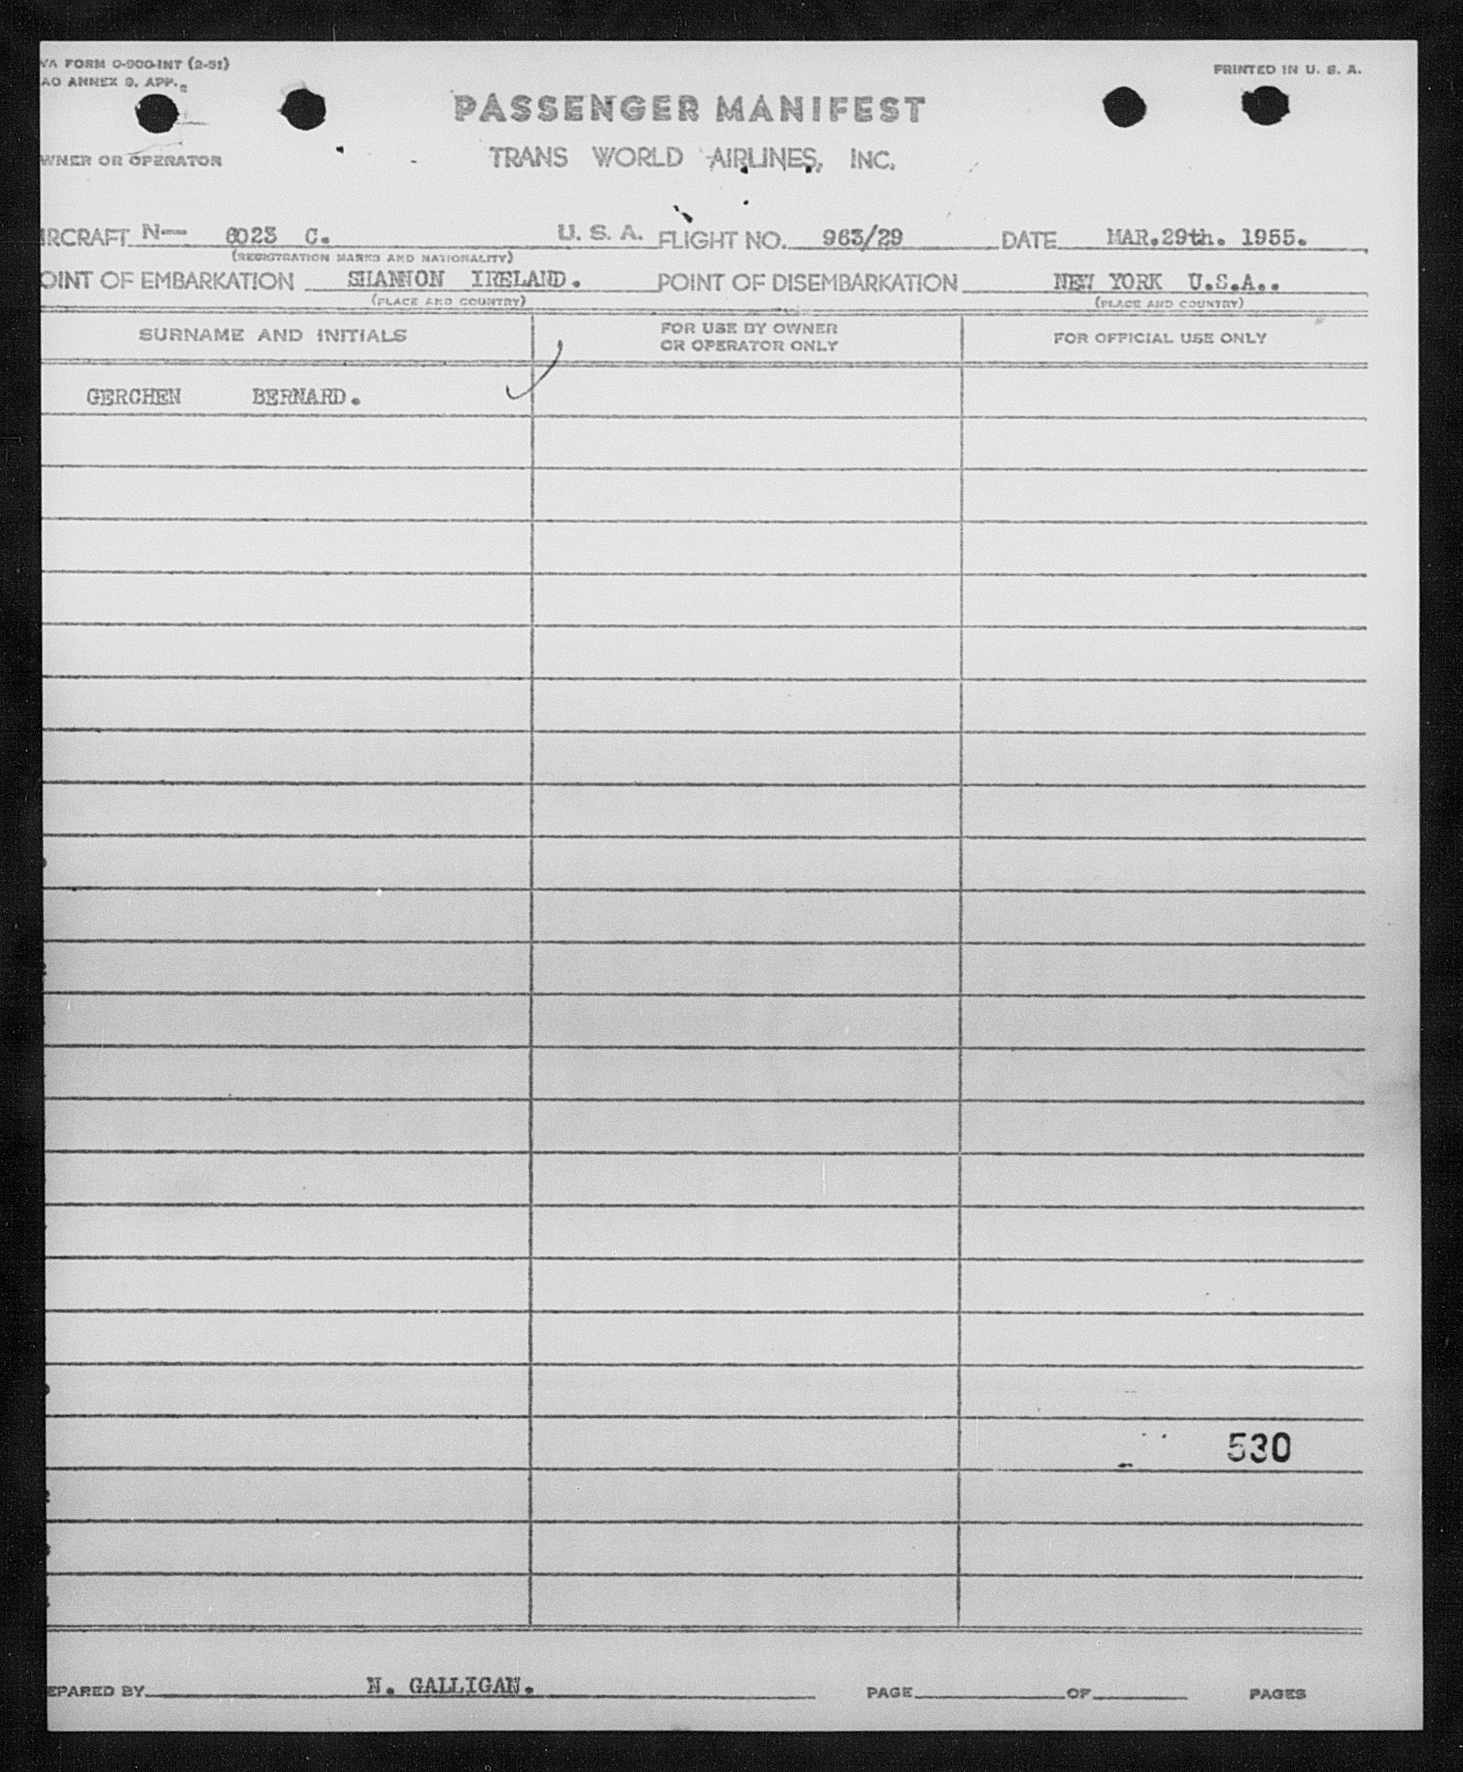 WA FORM O-900-INT (2-51)
PRINTED IN U. S. A.
AO ANNEX 9, APP.
PASSENGER MANIFEST
WNER OR OPERATOR
TRANS WORLD AIRLINES, INC.
IRCRAFT N-- 6023 C. U. S. A. FLIGHT NO. 963/29 DATE MAR.29th. 1955.
(REGISTRATION MARKS AND NATIONALITY)
OINT OF EMBARKATION SHANNON IRELAND. POINT OF DISEMBARKATION NEW YORK U.S.A..
(PLACE AND COUNTRY) (PLACE AND COUNTRY)
SURNAME AND INITIALS FOR USE BY OWNER OR OPERATOR ONLY FOR OFFICIAL USE ONLY
GERCHEN BERNARD.
530
EPARED BY N. GALLIGAN. PAGE OF PAGES